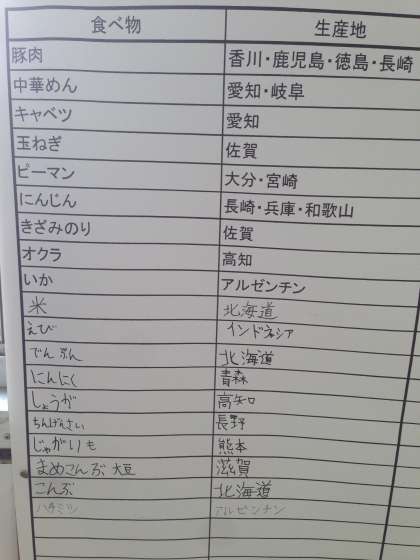 食べ物 生産地
豚肉 香川・鹿児島・徳島・長崎
中華めん 愛知・岐阜
キャベツ 愛知
玉ねぎ 佐賀
ピーマン 大分・宮崎
にんじん 長崎・兵庫・和歌山
きざみのり 佐賀
オクラ 高知
いか アルゼンチン
米 北海道
えび インドネシア
でんぷん 北海道
にんにく 青森
しょうが 高知
ちんげんさい 長野
じゃがいも 熊本
まめこんぶ 大豆 滋賀
こんぶ 北海道
ハチミツ アルゼンチン